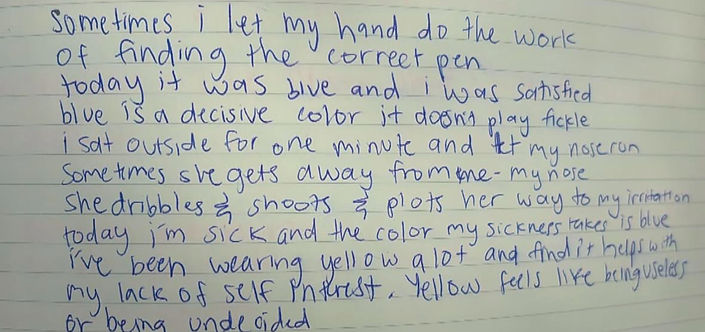 sometimes i let my hand do the work
of finding the correct pen
today it was blue and i was satisfied
blue is a decisive color it doesn't play fickle
i sat outside for one minute and let my nose run
Sometimes she gets away from me - my nose
She dribbles & shoots & plots her way to my irritation
today i'm sick and the color my sickness takes is blue
i've been wearing yellow a lot and find it helps with
my lack of self interest. Yellow feels like being useless
or being undecided